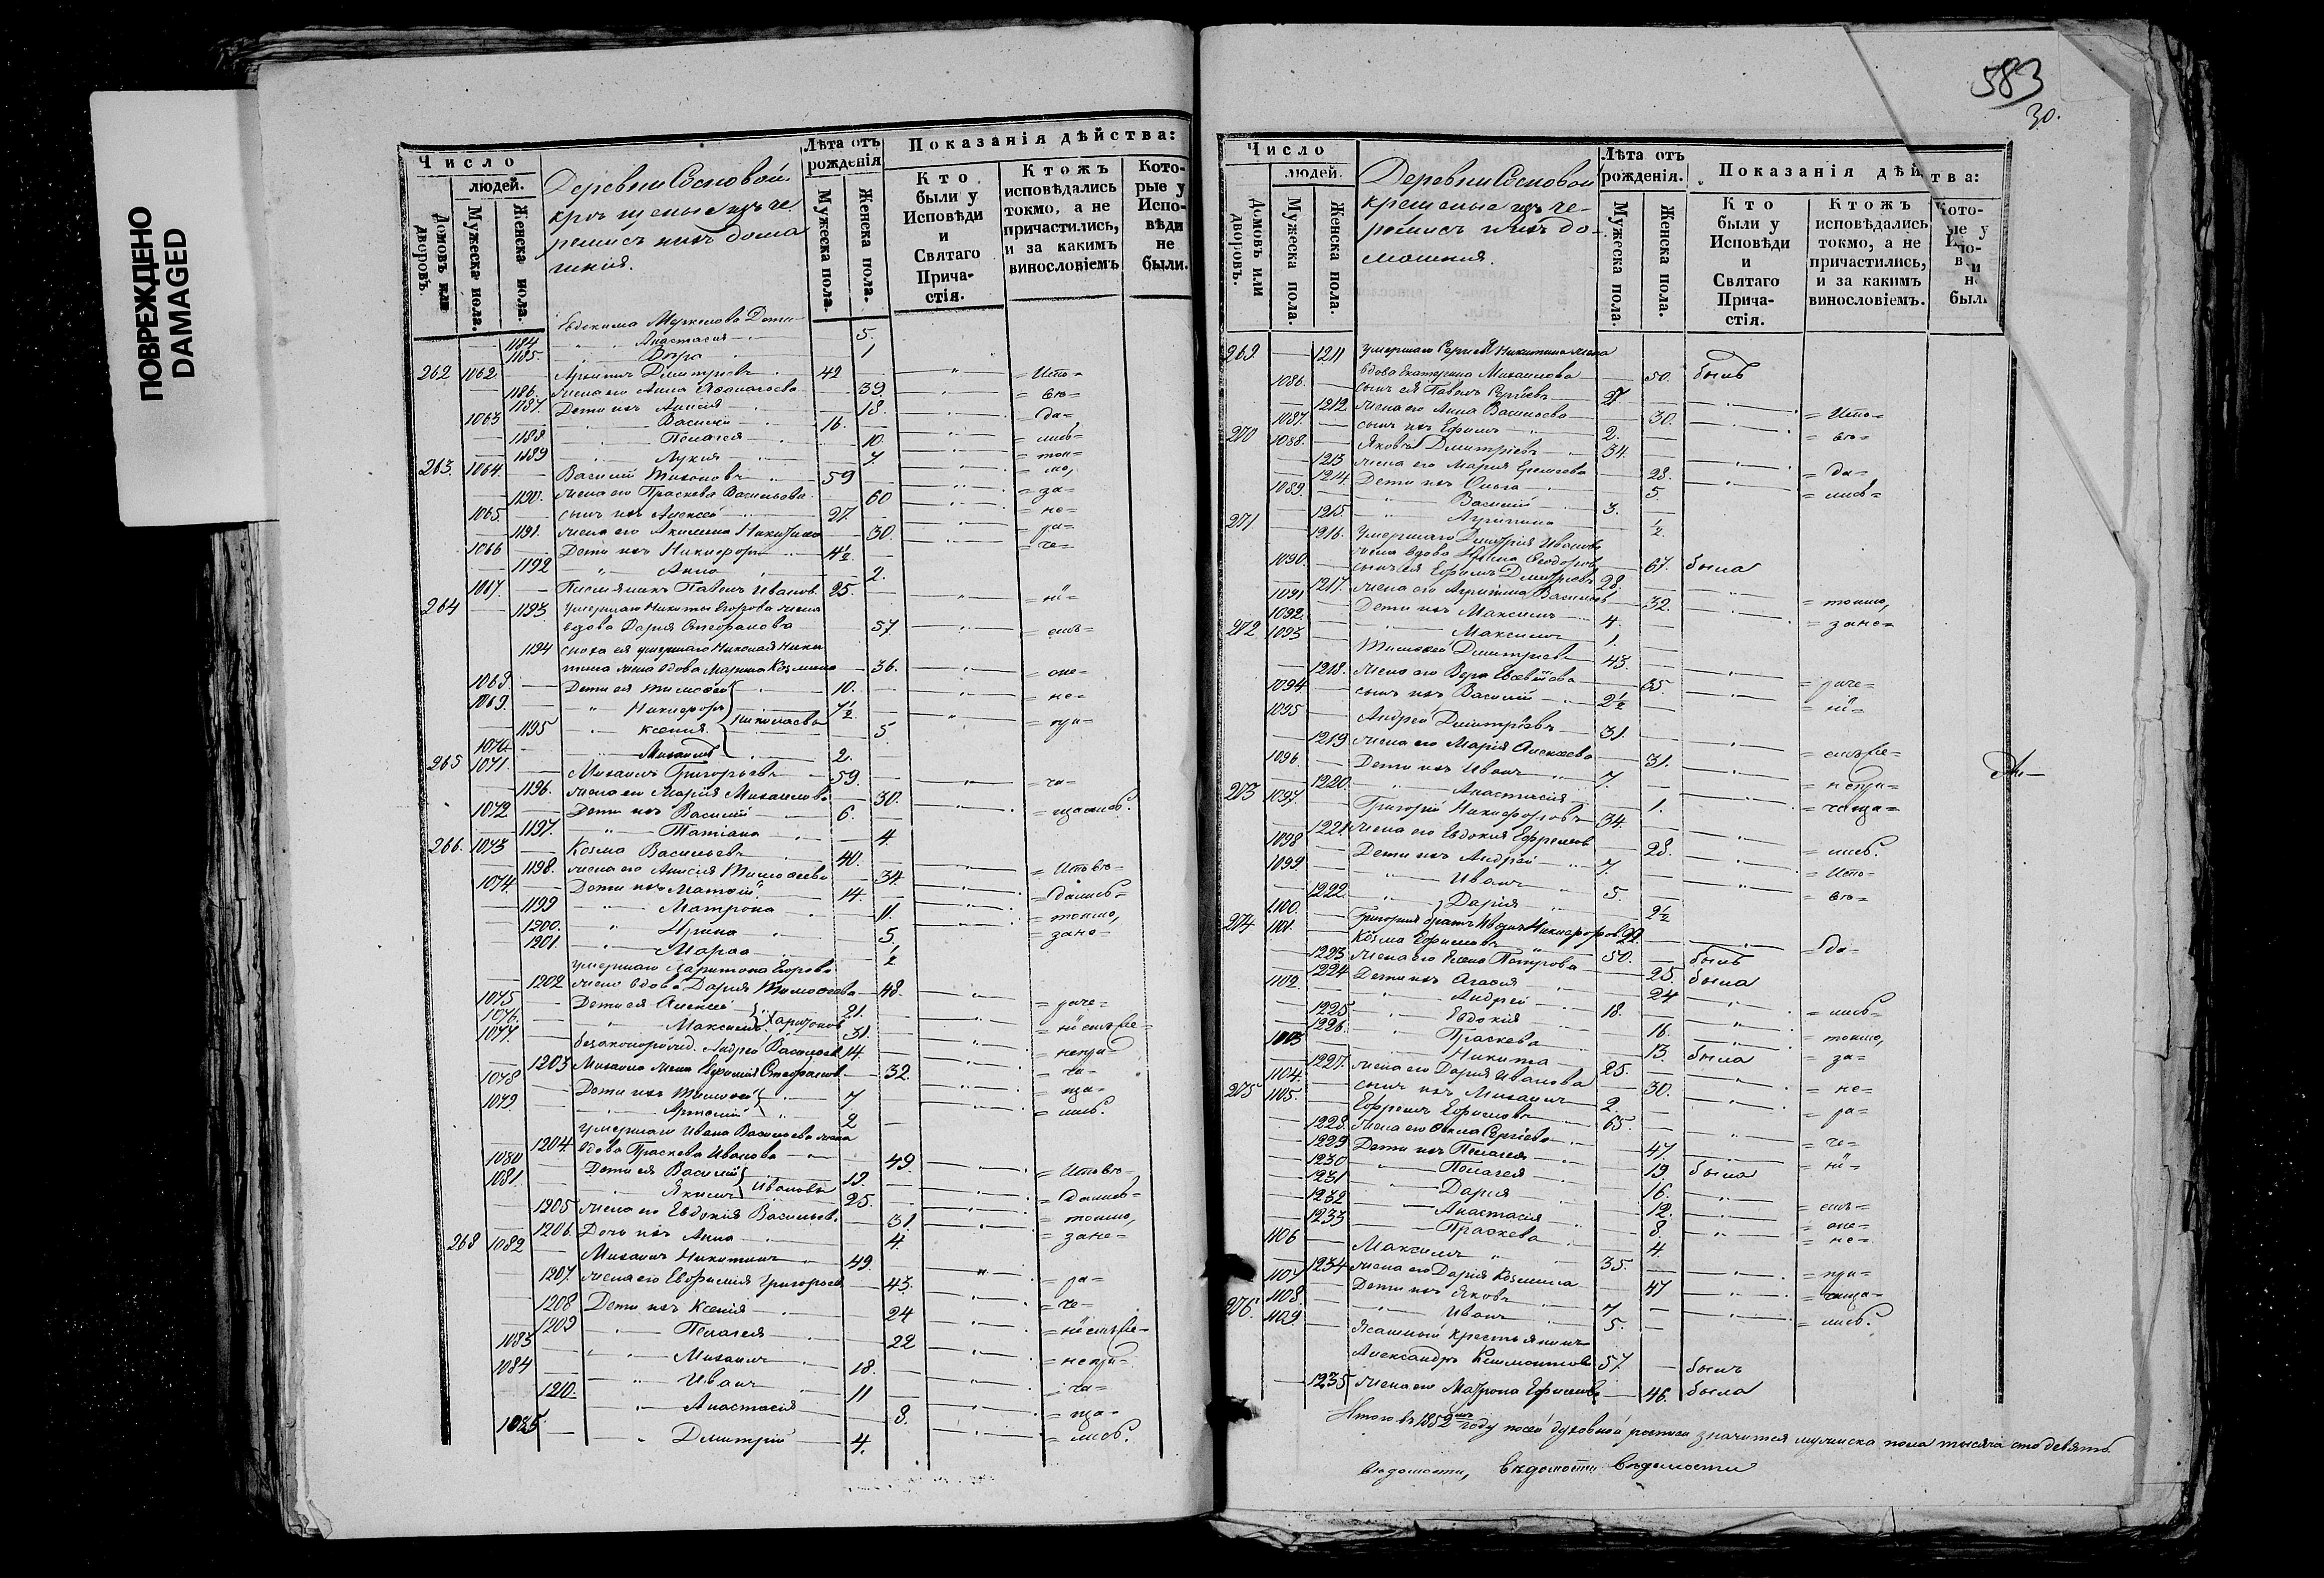 ПОВРЕЖДЕНО
DAMAGED
Число
людей.
Домовъ или дворовъ.
Мужеска пола.
Женска пола.
Деревни Сосновой
крещеные изъ че-
ремисъ и ихъ дома
шнія.
Лѣта отъ рожденія
Мужеска пола.
Женска пола.
Показанія дѣйства:
Кто были у Исповѣди и Святаго Прича-стія.
Ктожъ исповѣдались токмо, а не причастились, и за какимъ винословіемъ
Кото-рые у Испо-вѣди не были.
1184 Анастасія 5.
1185 1
262 1062 Дмитріевъ 42
1186. жена его Анна 39. = Испо=
1187. Дети ихъ Анисія 18. = вѣ=
1063 Василій 16. = да=
1188 Пелагея 10. = лись=
1189 Лукія 7. = ток=
263. 1064. Василій Тихоновъ 59 = мо,
1190. жена его Праскева Васильева 60 = за=
1065. сынъ ихъ Алексей 27. = не=
1191. жена его Акилина Никитина 30. = ра=
1066 Дети ихъ Никифоръ 4½ = че=
1192 Анна 2.
1067. Племянникъ Павелъ Ивановъ 25. = ні=
264 1193 умершаго Никиты Егорова жена
вдова Дарія Стефанова 57. = емъ=
1194 сноха ея умершаго Николая Ники
тина жена вдова Марина Козмина 36. = оне=
1068 Дети ея Тимофей 10. = не=
1069. Никифоръ 7½ = при=
1195 Ксенія Николаевы 5
1070. Михаилъ 2.
265 1071. Михаилъ Григорьевъ 59. = ча=
1196. жена его Марія Михаилова 30. = щались.
1072 Дети ихъ Василій 6.
1197. Татіана 4.
266. 1073 Козма Васильевъ 40. = Исповѣ=
1198. жена его Анисія Тимофеева 34. = дались=
1074. Дети ихъ Матфій 14. = токмо,
1199 Матрона 11. = зане=
1200. Ирина 5.
1201. Марфа ½
умершаго Харитона Егорова
1202 жена вдова Дарія Тимофеева 48. = раче=
1075 Дети ея Алексей 21. = ніемъ Се=
1076. Максимъ Харитоновы 31. = непри=
1077. беззаконорожд. Андрей Васильевъ 14. = ча=
1203 Максима жена Евфимія Стефанова 32. = ща=
1078 Дети ихъ Тимофей 7 = лись.
1079. Артемій 2
умершаго Ивана Васильева жена
1204. вдова Праскева Иванова 49. = Исповѣ=
1080 Дети ея Василій 19. = дались=
1081. Якимъ Ивановы 25. = токмо,
1205 жена его Евдокія Васильев. 31. = зане=
1206. Дочь ихъ Анна 4.
268 1082 Михаилъ Никитинъ 49. = ра=
1207. жена его Евфимія Григорьев 43. = че=
1208 Дети ихъ Ксенія 24 = ніемъ Се=
1209 Пелагея 22 = непри=
1083 Михаилъ 18. = ча=
1084 Иванъ 11 = ща=
1210. Анастасія 8. = лись.
1085 Дмитрій 4.
583
30.
Число
людей.
Домовъ или дворовъ.
Мужеска пола.
Женска пола.
Деревни Сосновой
крещеные изъ че-
ремисъ и ихъ до-
машнія.
Лѣта отъ рожденія.
Мужеска пола.
Женска пола.
Показанія дѣй тва:
Кто были у Исповѣди и Святаго Прича-стія.
Ктожъ исповѣдались токмо, а не причастились, и за какимъ винословіемъ.
269 1211 умершаго Сергея Никитина жена
вдова Екатерина Михаилова 50. былъ
1086. сынъ ея Павелъ Сергѣевъ 27.
1212 жена его Анна Васильева 30. = Испо=
1087. сынъ ихъ Ефимъ 2. = вѣ=
270 1088. Яковъ Дмитріевъ 34. = да=
1213 жена его Марія 28. = лись=
1214. Дети ихъ Ольга 5.
1089. Василій 3.
1215. Агрипина ½
271 1216. умершаго Дмитрія Иванова
жена вдова Ирина Феодоров 67. была
1090. сынъ ея Ефимъ Дмитріевъ 28. = токмо,
1217. жена его Агрипина Василиев 32. = зане=
1091 Дети ихъ Максимъ 4.
1092. Максимъ 1.
272 1093 Тимофей Дмитріевъ 43. = раче=
1218. жена его Вера 35. = ні=
1094 сынъ ихъ Василій 2½
1095 Андрей Дмитріевъ 31. = емъ Се=
1219 жена его Марія Алексеева 31. = непри=
1096. Дети ихъ Иванъ 7. = чаща=
1220. Анастасія 1.
273 1097. Григорій Никифоровъ 34. = лись.
1221 жена его Евдокія Ефремов 28. = Испо=
1098 Дети ихъ Андрей 7. = вѣ=
1099. Иванъ 5.
1222. Дарія 2½
1100. Григорія братъ Иванъ Никифоровъ 22. = да=
274 1101. Козма Ефимовъ 50. былъ
1223 жена его Елена Петрова 25. была
1224 Дети ихъ Агафія 24 = лись=
1102. Андрей 18. = токмо,
1225 Евдокія 16. = за=
1226. Праскева 13. была
1103 Никита 25. = не=
1227. жена его Дарія Иванова 30. = ра=
1104. сынъ ихъ Михаилъ 2.
275 1105. Ефремъ Ефимовъ 65. = че=
1228. жена его Фекла Сергіева 47. = ні=
1229 Дети ихъ Пелагея 19. была
1230 Пелагея 16. = емъ=
1231 Дарія 12. = оне=
1232 Анастасія 8. = не=
1233 Праскева 4.
1106 Максимъ 35. = при=
1234 жена его Дарія Козмина 47 = чаща=
1107 Дети ихъ Яковъ 7 = лись.
1108. Иванъ 5.
276. 1109. Ясашный крестьянинъ
Александръ 57. былъ
1235 жена его Матрона Ефимова 46. была
Итого въ 1852мъ году по сей духовной росписи значится мужеска пола тысяча сто девять
ведомости, ведомости ведомости